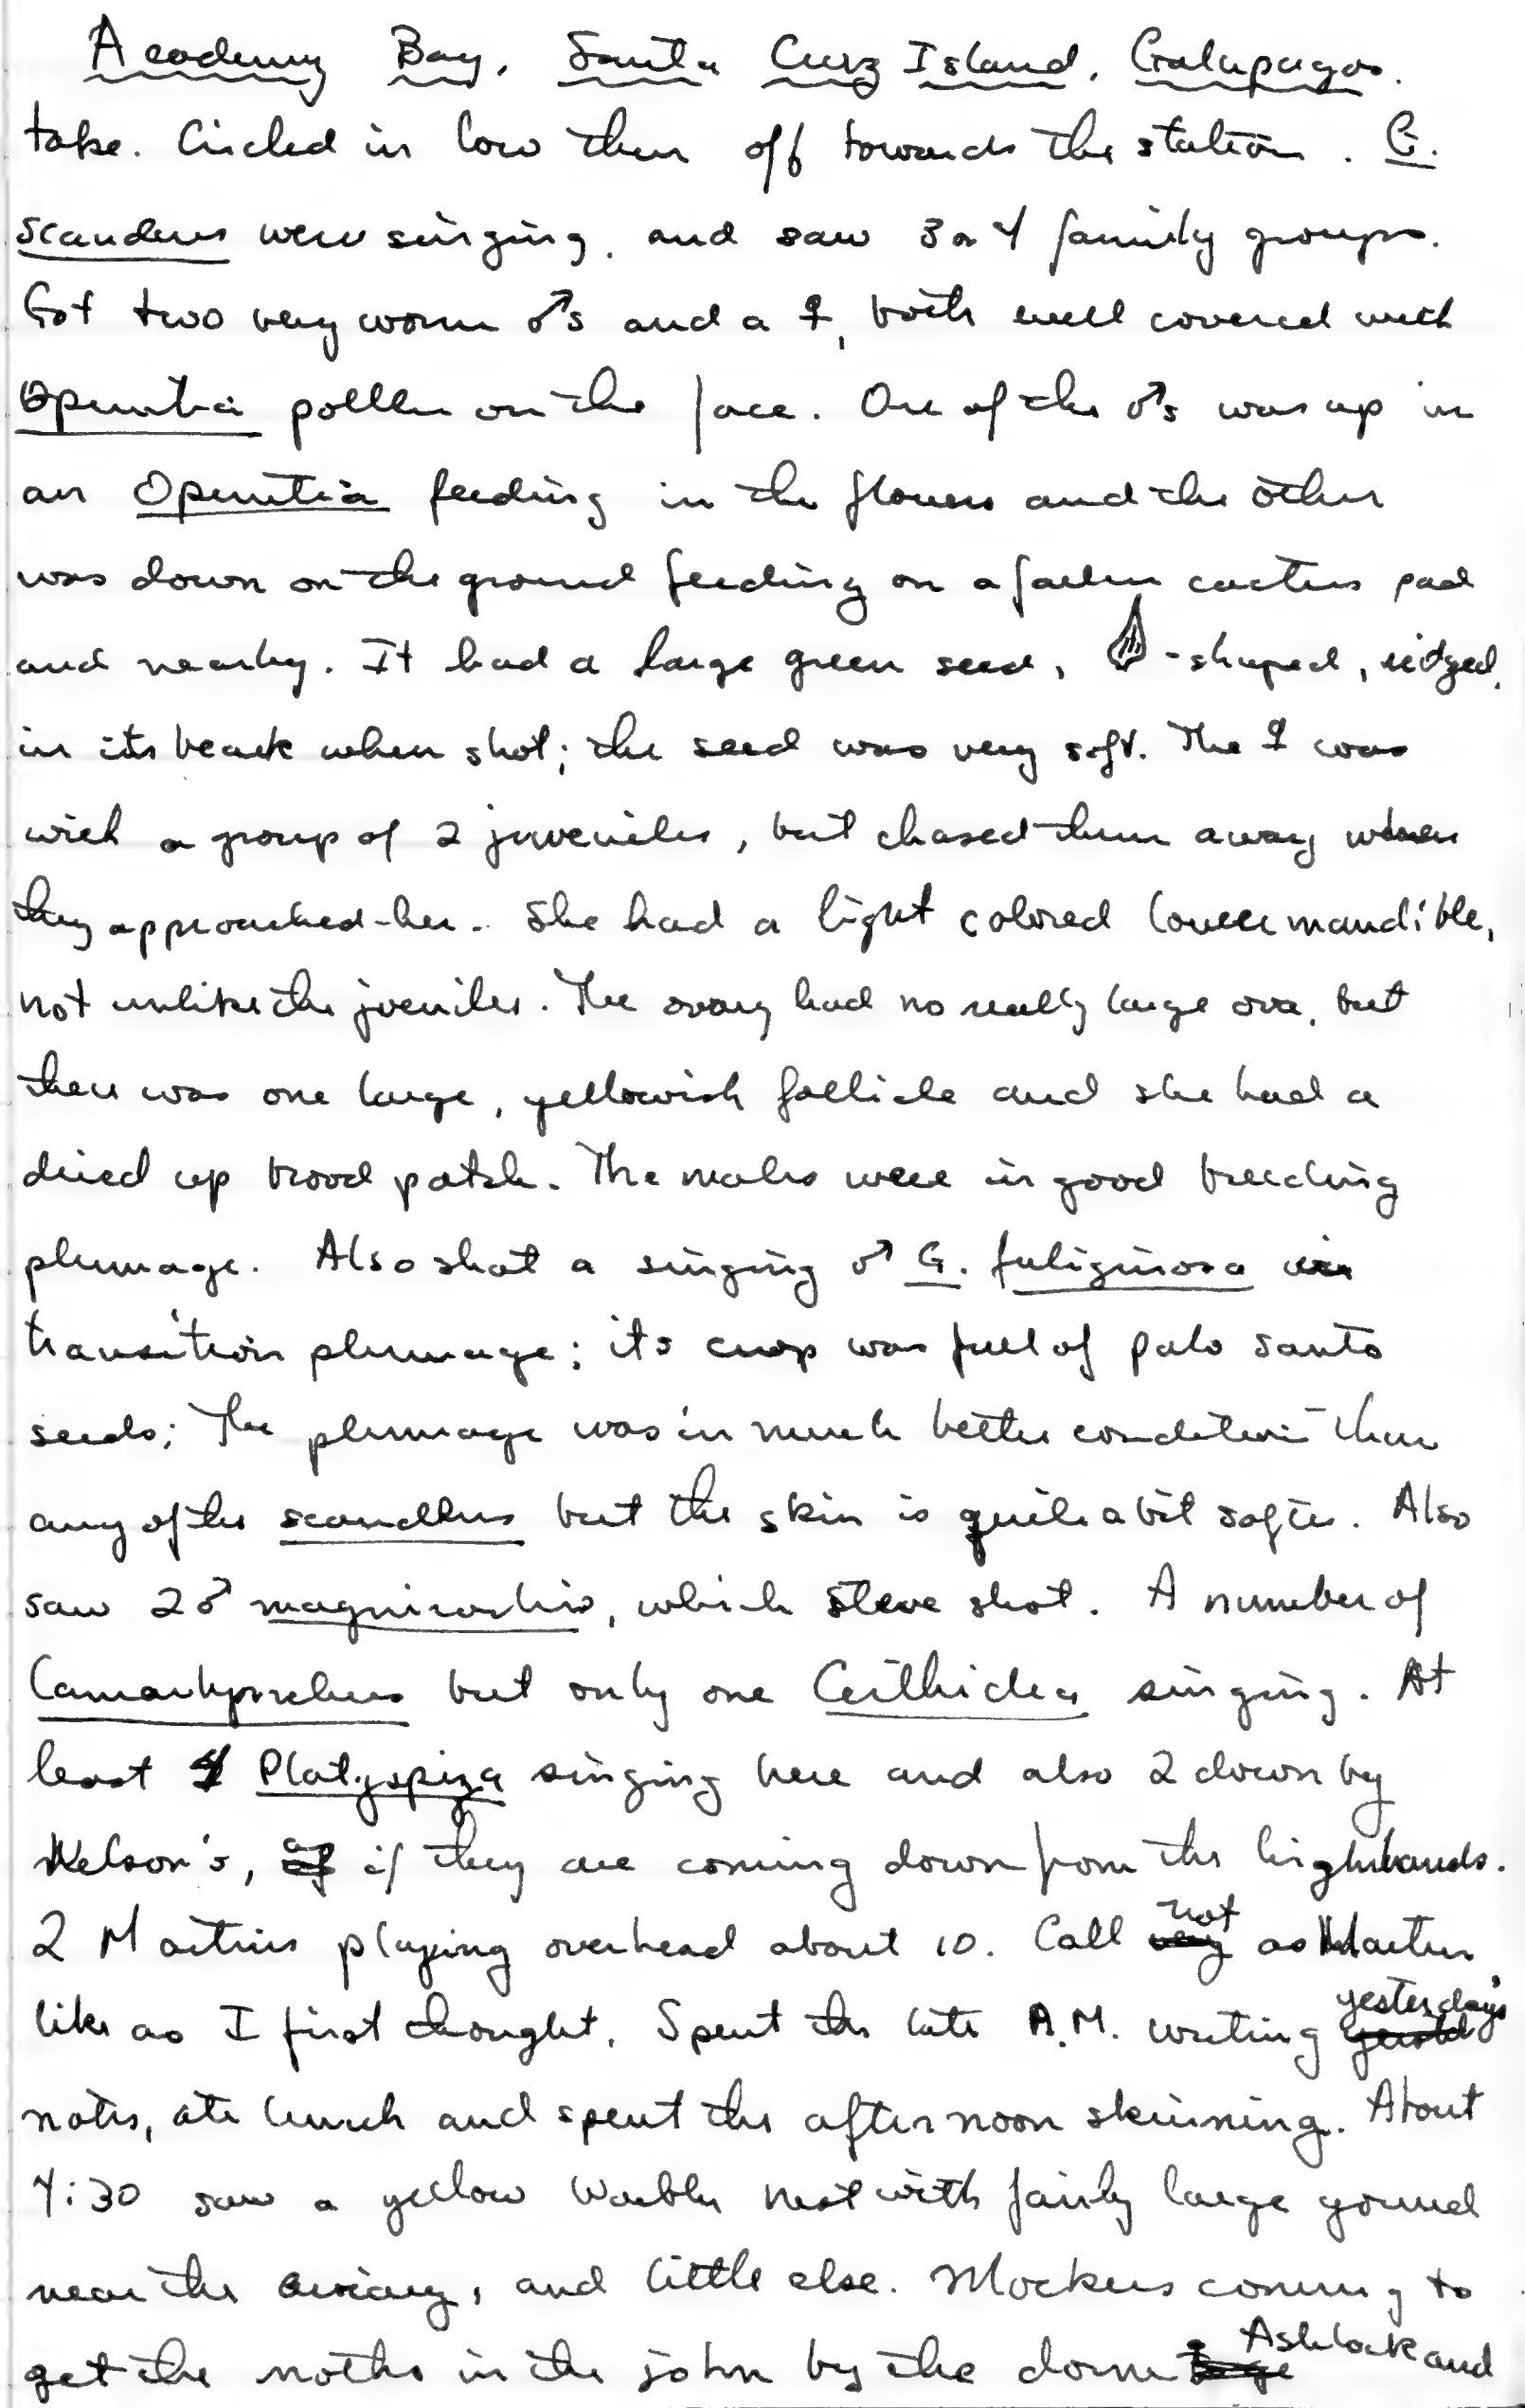 Academy Bay, Santa Cruz Island, Galapagos.
take. Circled in low then off towards the station. G.
scandens were singing, and saw 3 or 4 family groups.
Got two very worn ♂s and a ♀, both well covered with
Opuntia pollen on the face. One of the ♂s was up in
an Opuntia feeding in the flowers and the other
was down on the ground feeding on a fallen cactus pad
and nearby. It had a large green seed, -shaped, ridged,
in its beak when shot; the seed was very soft. The ♀ was
with a group of 2 juveniles, but chased them away when
they approached her. She had a light colored lower mandible,
not unlike the juveniles. The ovary had no really large ova, but
there was one large, yellowish follicle and she had a
dried up brood patch. The males were in good breeding
plumage. Also shot a singing ♂ G. fuliginosa in
transition plumage; its crop was full of palo santo
seeds; The plumage was in much better condition than
any of the scandens but the skin is quite a bit softer. Also
saw 2 ♂ magnirostris, which Steve shot. A number of
Camarhynchus but only one Certhidea singing. At
least 4 Platyspiza singing here and also 2 down by
Nelson's, as if they are coming down from the highlands.
2 Martins playing overhead about 10. Call not as Martin
like as I first thought. Spent the late A.M. writing yesterday's
notes, ate lunch and spent the afternoon skinning. About
4:30 saw a yellow Warbler nest with fairly large young
near the aviary, and little else. Mockers coming to
get the moths in the john by the dorm Ashlock and